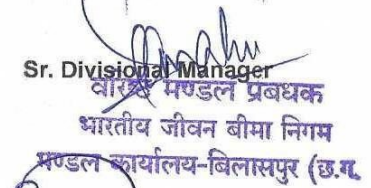 Sr. Divisional Manager
वरिष्ठ मण्डल प्रबंधक
भारतीय जीवन बीमा निगम
मण्डल कार्यालय-बिलासपुर (छ.ग.